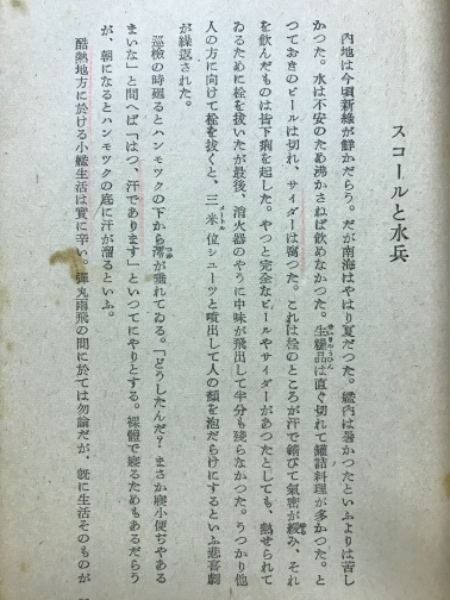 スコールと水兵
内地は今頃新緑が鮮かだらう。だが南海はやはり夏だつた。艦内は暑かつたといふよりは苦し
かつた。水は不安のため沸かさねば飲めなかつた。生糧品は直ぐ切れて罐詰料理が多かつた。と
つておきのビールは切れ、サイダーは腐つた。これは栓のところが汗で錆びて氣密が緩み、それ
を飲んだものは皆下痢を起した。やつと完全なビールやサイダーがあつたとしても、熱せられて
ゐるために栓を抜いたが最後、消火器のやうに中味が飛出して半分も残らなかつた。うつかり他
人の方に向けて栓を抜くと、三米位シューツと噴出して人の顔を泡だらけにするといふ悲喜劇
が繰返された。
巡檢の時廻るとハンモツクの下から滴が垂れてゐる。「どうしたんだ? まさか寢小便ぢやある
まいな」と問へば「はつ、汗であります」といつてにやりとする。裸體で寢るためもあるだらう
が、朝になるとハンモツクの底に汗が溜るといふ。
酷熱地方に於ける小艦生活は實に辛い。彈丸雨飛の間に於ては勿論だが、既に生活そのものが